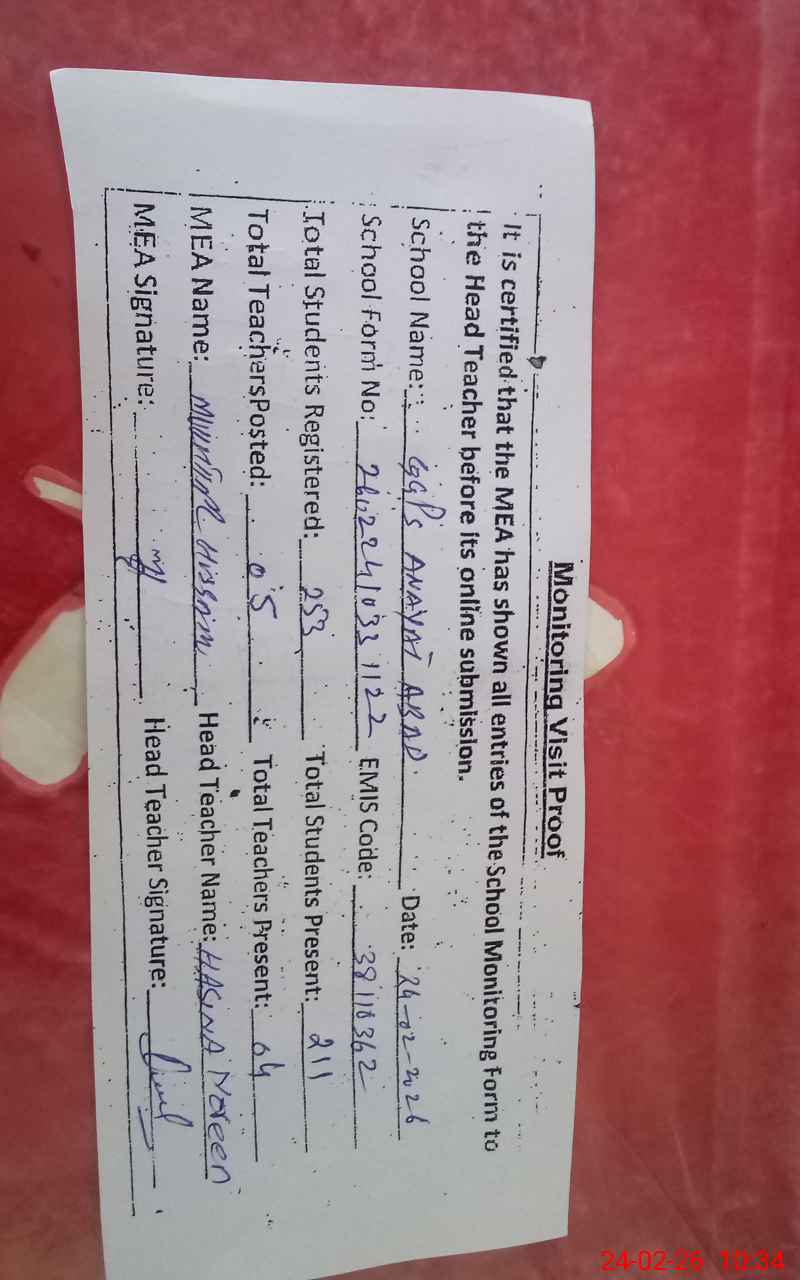 Monitoring Visit Proof
It is certified that the MEA has shown all entries of the School Monitoring Form to
the Head Teacher before its online submission.
School Name: GGPS ANAYAT ABAD. Date: 24-02-2026
School Form No: 2602241033 1122 EMIS Code: 38110362
Total Students Registered: 253 Total Students Present: 211
Total Teachers Posted: 05 Total Teachers Present: 04
MEA Name: Hussain Head Teacher Name: HASINA Noreen
MEA Signature: Head Teacher Signature:
24-02-26 10:34